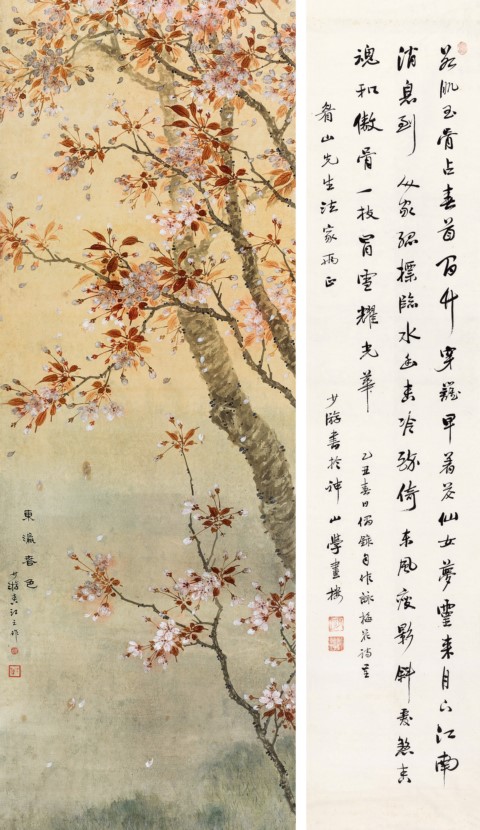 肌玉骨占春首 着花仙女夢靈來月下江南
消息到人家孤標臨水幽香冷 倚東風瘦影斜
魂和傲骨一枝冒雪耀光華
乙丑春日偶錄自作詠梅花詩呈
山先生法家兩正
少游書於神山學畫樓
東瀛春色
少游香江之作